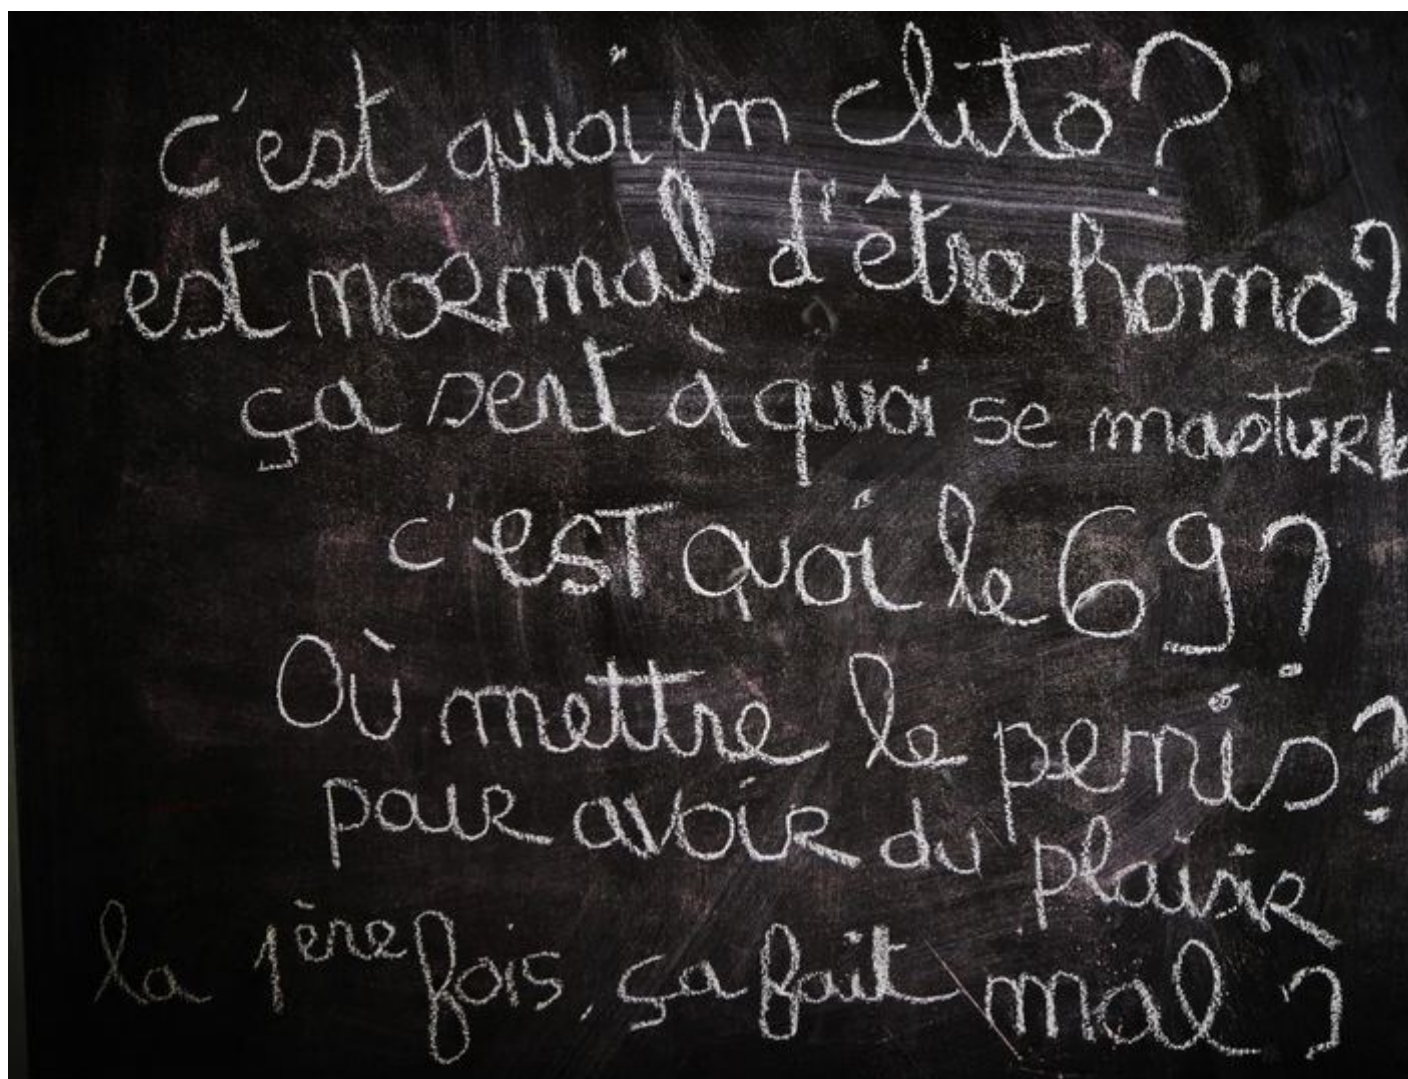 c'est quoi un clito?
c'est normal d'être homo?
ça sert à quoi se masturb
c'est quoi le 69?
Où mettre le penis?
pour avoir du plaisir
la 1ère fois, ça fait mal?